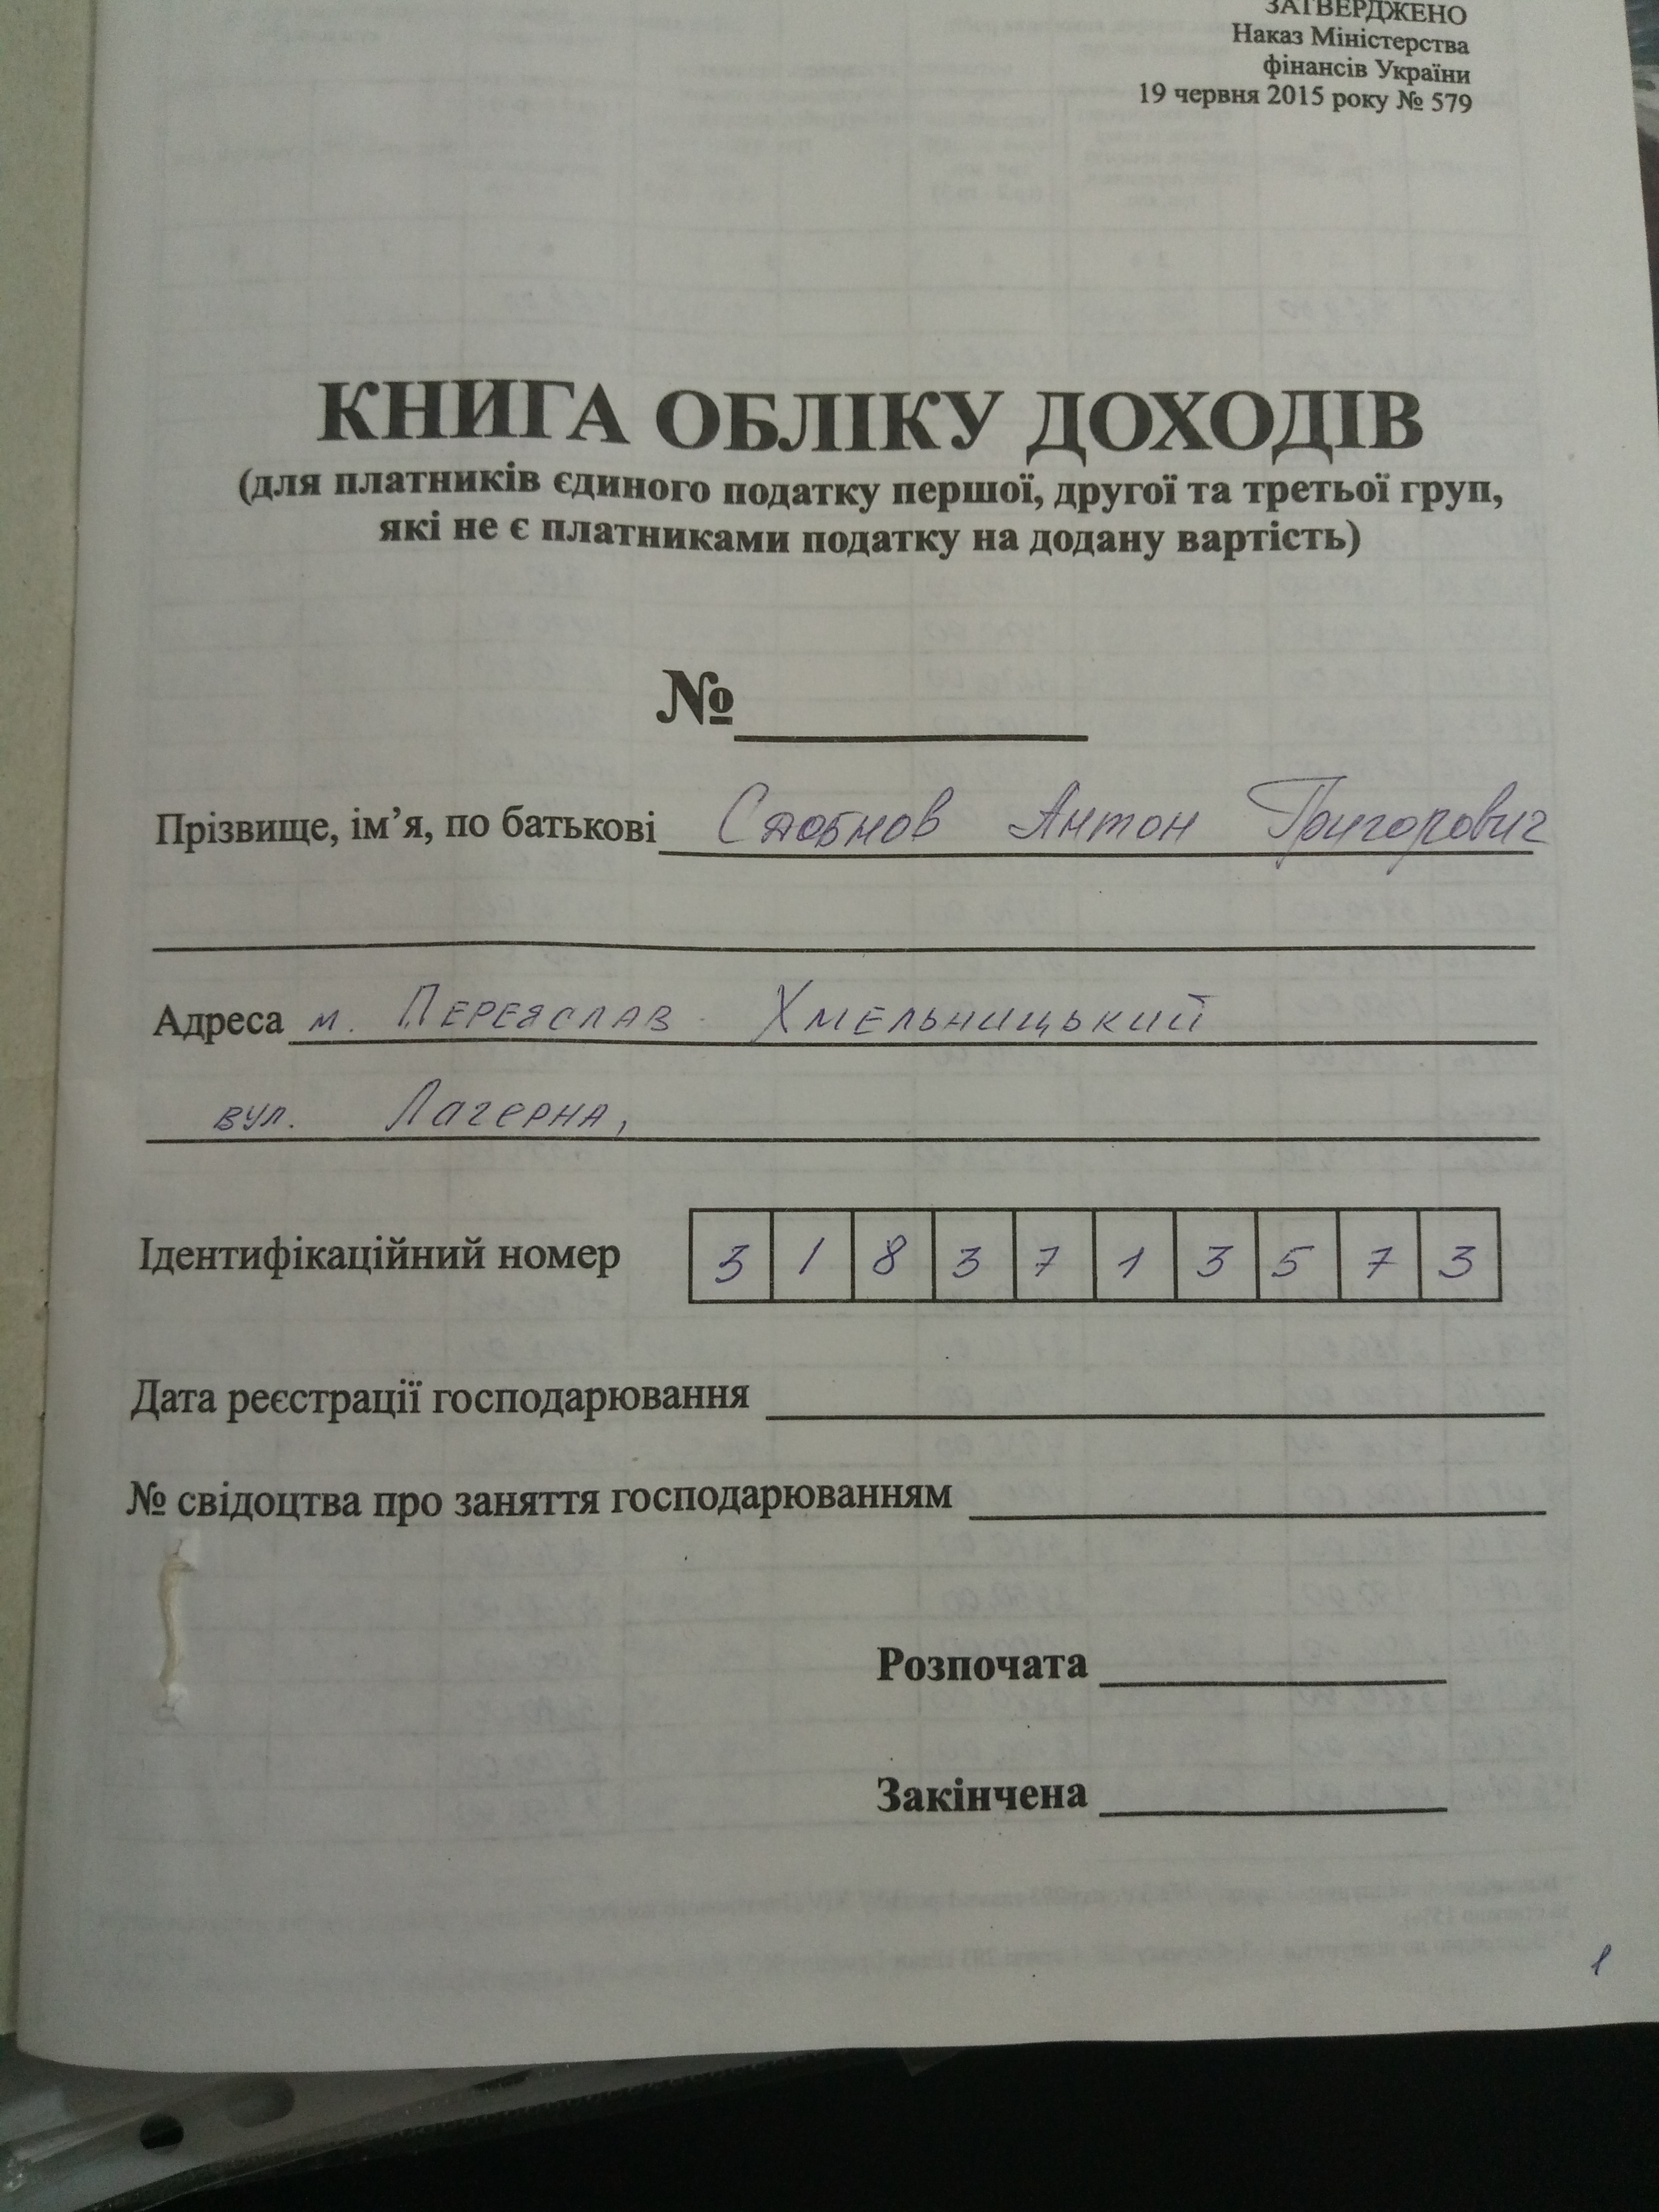 ЗАТВЕРДЖЕНО
Наказ Міністерства
фінансів України
19 червня 2015 року № 579
КНИГА ОБЛІКУ ДОХОДІВ
(для платників єдиного податку першої, другої та третьої груп,
які не є платниками податку на додану вартість)
№
Прізвище, ім’я, по батькові Антон Григорович
Адреса м. Переяслав - Хмельницький
вул. Лагерна,
Ідентифікаційний номер 3 1 8 3 7 1 3 5 7 3
Дата реєстрації господарювання
№ свідоцтва про заняття господарюванням
Розпочата
Закінчена
1